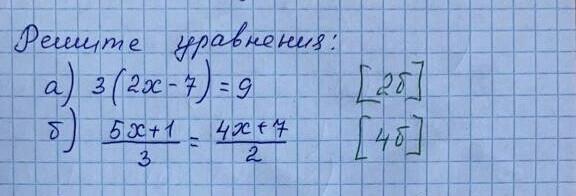 Решите уравнения:
а) 3(2x-7)=9 [2б]
б) (5x+1)/3 = (4x+7)/2 [4б]